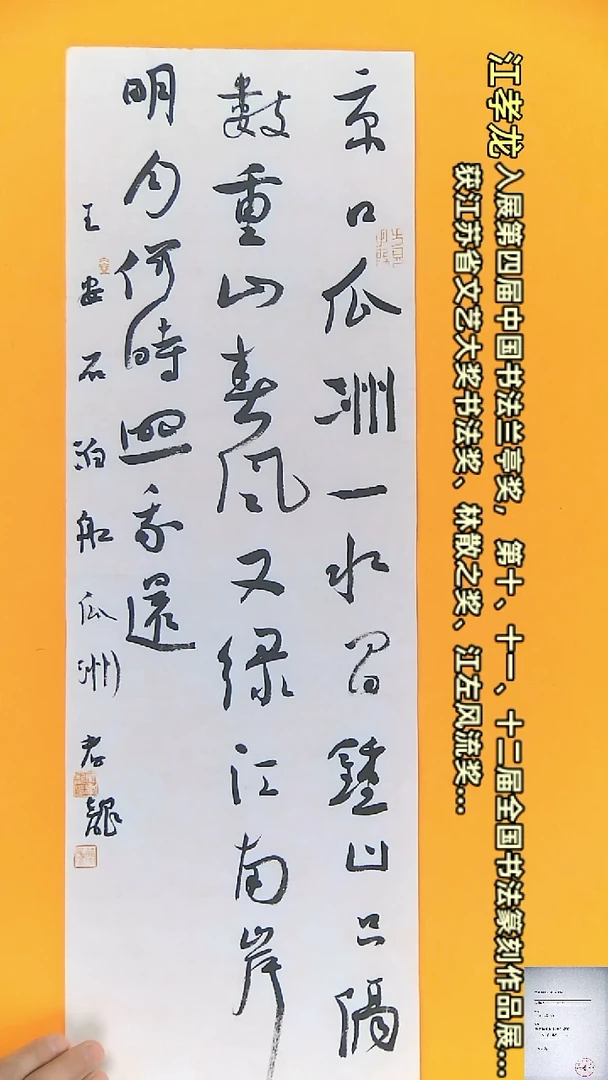 江孝龙 入展第四届中国书法兰亭奖，第十、十一、十二届全国书法篆刻作品展...
获江苏省文艺大奖书法奖、林散之奖、江左风流奖...
京口瓜洲一水間鍾山只隔
數重山春風又綠江南岸
明月何時照我還
王安石泊船瓜洲 孝龍